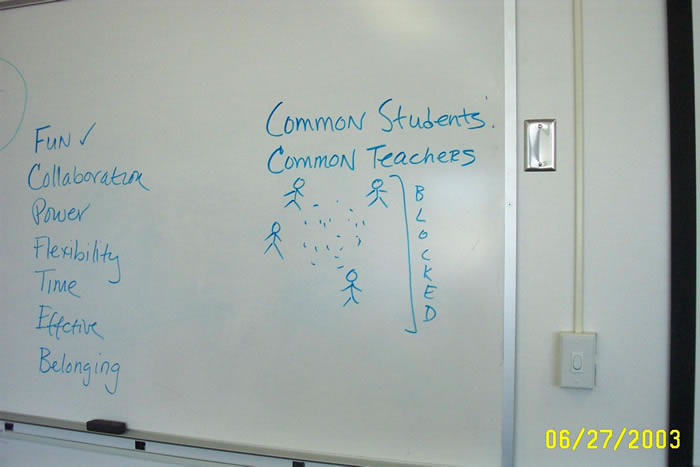 FUN ✓
Collaboration
Power
Flexibility
Time
Effctive
Belonging
Common Students
Common Teachers
B
L
O
C
K
E
D
06/27/2003